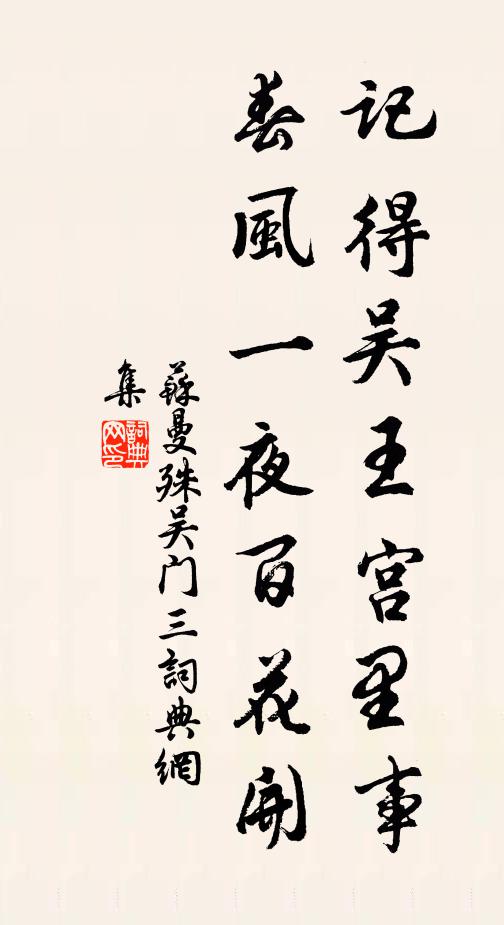 记得吴王宫里事
春風一夜百花開
蘇曼殊吴门三詞典網
集
詞典
网印